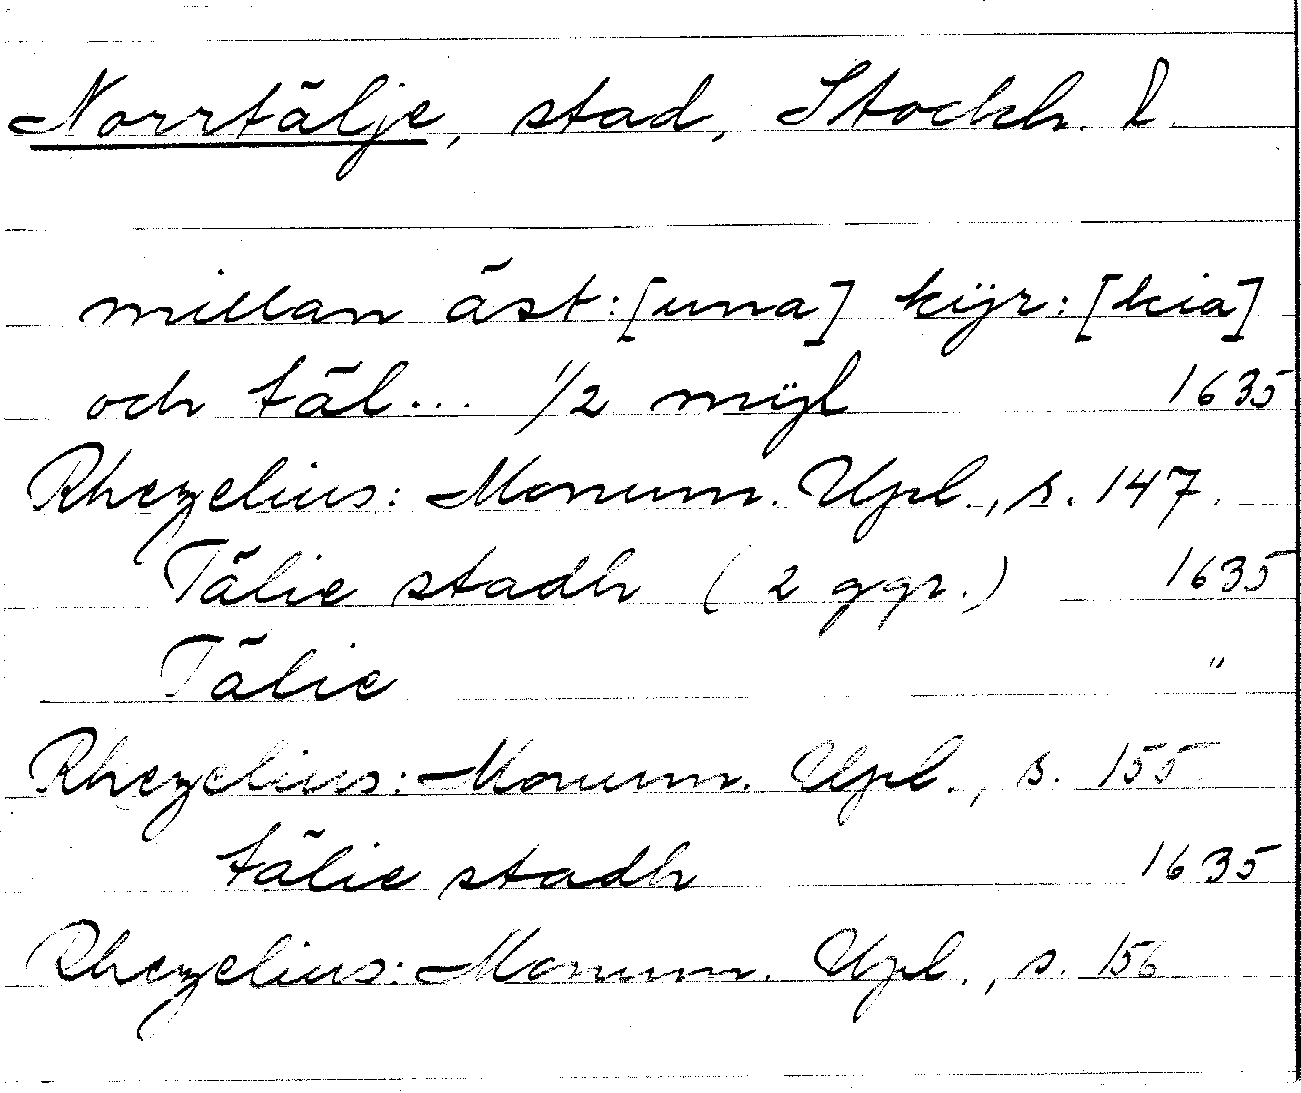 Norrtälje, stad, Stockh. l.
millan äst:[una] kÿr:[kia]
och täl... 1/2 mÿl 1635
Rhezelius: Monum. Upl., s. 147.
Tälie stadh (2 ggr.) 1635
Tälie "
Rhezelius: Monum. Upl., s. 155
tälie stadh 1635
Rhezelius: Monum. Upl., s. 156